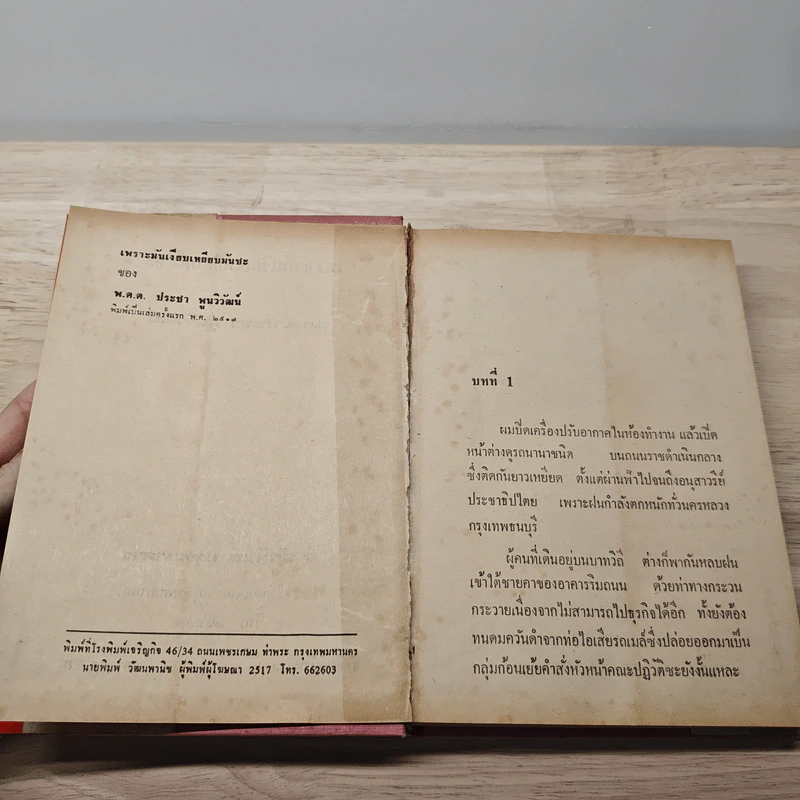 เพราะมันเงียบเหยียบมันซะ
ของ
พ.ต.ต. ประชา พูนวิวัฒน์
พิมพ์เป็นเล่มครั้งแรก พ.ศ. ๒๕๑๗
พิมพ์ที่โรงพิมพ์เจริญกิจ 46/34 ถนนเพชรเกษม ท่าพระ กรุงเทพมหานคร
นายพิมพ์ วัฒนพานิช ผู้พิมพ์ผู้โฆษณา 2517 โทร. 662603
บทที่ 1
ผมปิดเครื่องปรับอากาศในห้องทำงาน แล้วเปิด
หน้าต่างดูรถนานาชนิด บนถนนราชดำเนินกลาง
ซึ่งติดกันยาวเหยียด ตั้งแต่ผ่านฟ้าไปจนถึงอนุสาวรีย์
ประชาธิปไตย เพราะฝนกำลังตกหนักทั่วนครหลวง
กรุงเทพธนบุรี
ผู้คนที่เดินอยู่บนบาทวิถี ต่างก็พากันหลบฝน
เข้าใต้ชายคาของอาคารริมถนน ด้วยท่าทางกระวน
กระวายเนื่องจากไม่สามารถไปธุรกิจได้อีก ทั้งยังต้อง
ทนดมควันดำจากท่อไอเสียรถเมล์ซึ่งปล่อยออกมาเป็น
กลุ่มก้อนเย้ยคำสั่งหัวหน้าคณะปฏิวัติซะยังงั้นแหละ